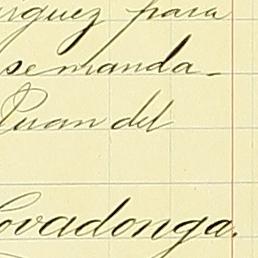 para
se manda-
Juan del
Covadonga.